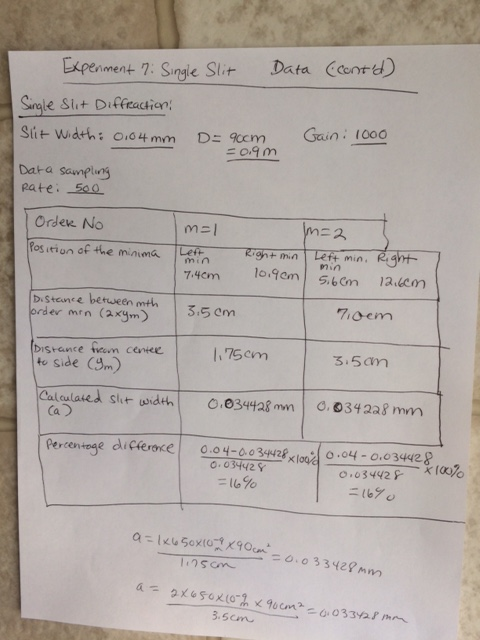 Experiment 7: Single Slit Data (cont'd)
Single Slit Diffraction:
Slit Width: 0.04mm D= 90cm Gain: 1000
= 0.9m
Data sampling
Rate: 500
Order No m=1 m=2
Position of the minima Left min Right min Left min. Right min
7.4cm 10.9cm 5.6cm 12.6cm
Distance between mth order min (2xym) 3.5cm 7.0cm
Distance from center to side (ym) 1.75cm 3.5cm
Calculated slit width (a) 0.034428mm 0.034228mm
Percentage difference 0.04-0.034428/0.034428 x100% 0.04-0.034428/0.034428 x100%
=16% =16%
a = 1x650x10⁻⁹m x90cm²/1.75cm = 0.033428mm
a = 2x650x10⁻⁹m x90cm²/3.5cm = 0.033428mm